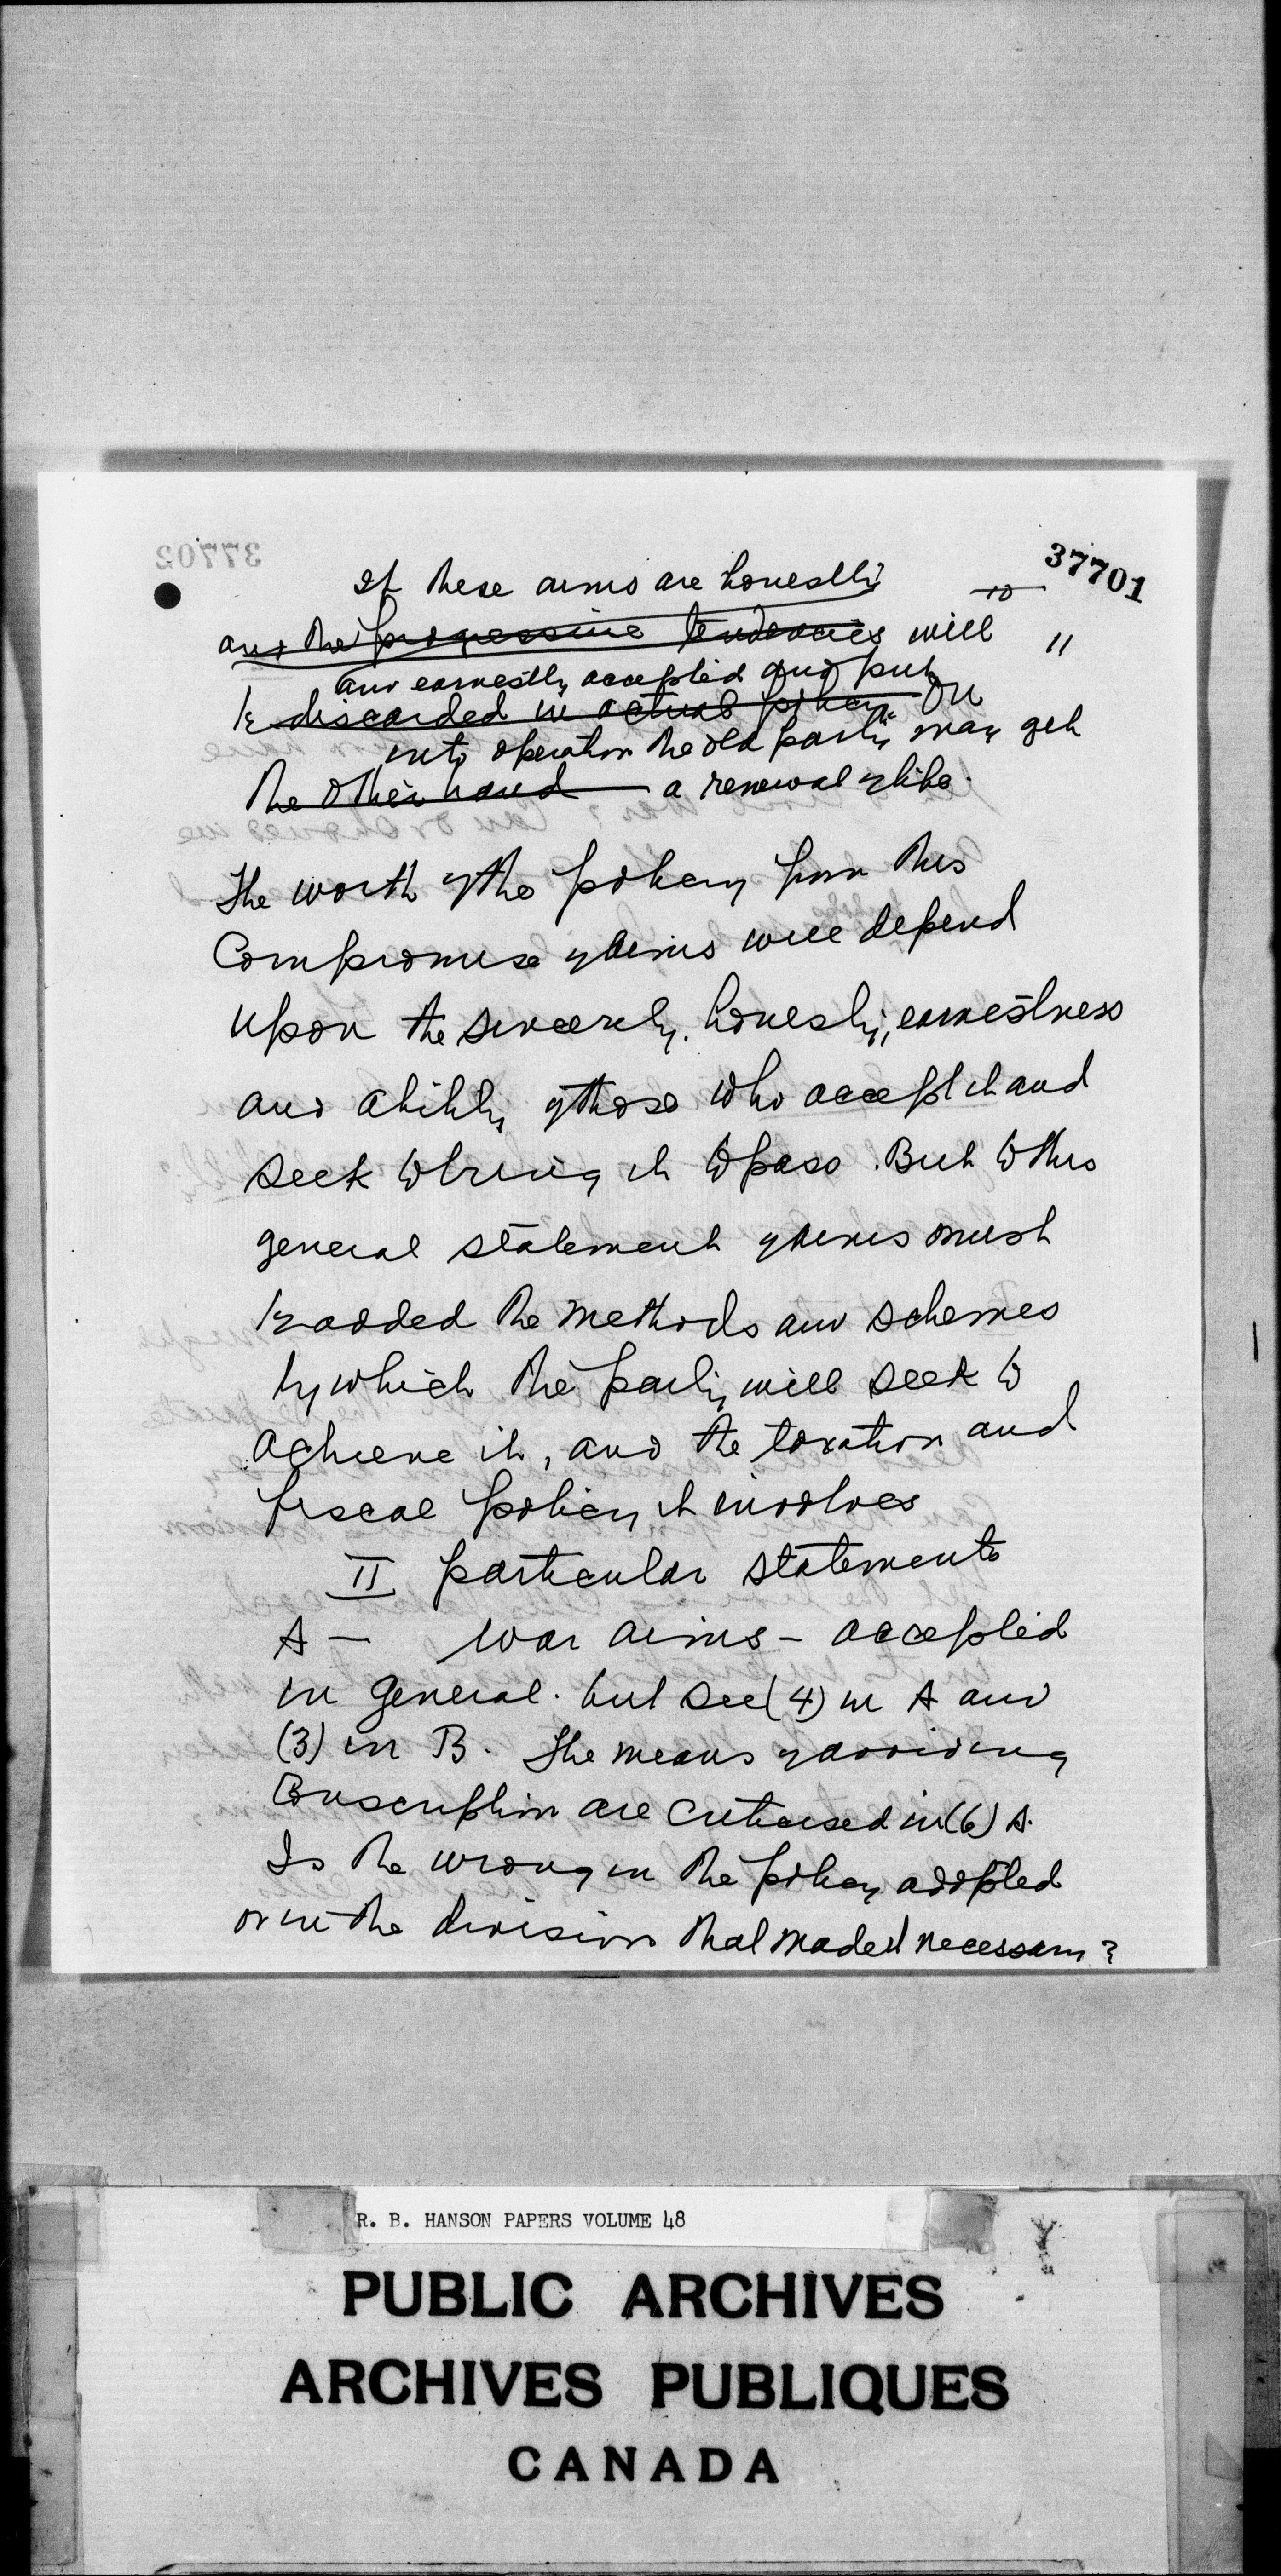 37701
37702
If these aims are honestly
10
and the progressive tendencies will
11
and earnestly accepted and put
be discarded in actual policy. On
into operation the old party may get
the other hand a renewal of life.
The worth of the policy from this
Compromise of aims will depend
upon the sincerity, honesty, earnestness
and ability of those who accept it and
seek to bring it to pass. But to this
general statement of aims must
be added the methods and schemes
by which the party will seek to
achieve it, and the taxation and
fiscal policy it involves
II particular statements
A — War aims – accepted
in general. but see (4) in A and
(3) in B. The means of avoiding
Conscription are criticised in (6) A.
Is the wrong in the policy adopted
or in the division that made it necessary?
R. B. HANSON PAPERS VOLUME 48
PUBLIC ARCHIVES
ARCHIVES PUBLIQUES
CANADA